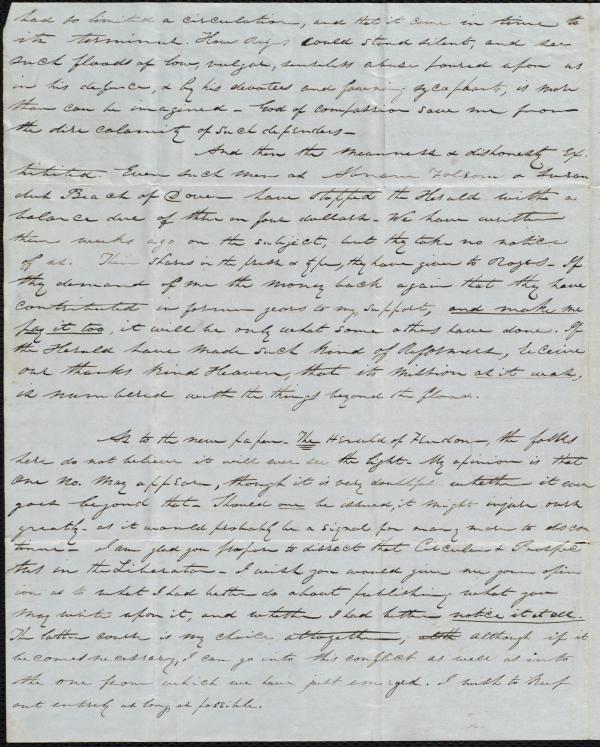 had so limited a circulation, and that it came in time to
its terminus. How Rogers could stand silent, and see
such floods of low, vulgar, senseless abuse poured upon us
in his defence, & by his devotees and fawning sycophants, is more
than can be imagined - God of compassion save me from
the dire calamity of such defenders -
And then the meanness & dishonesty ex-
hibited. Even such men as Abram Folsom & 
Beach of Dover have stopped the Herald with a
balance due of three or four dollars - We have written
them weeks ago on the subject, but they take no notice
of us. Their shares in the press & type, they have given to Rogers - If
they demand of me the money back again that they have
contributed in former years to my support, and make me
pay it too, it will be only what some others have done. If
the Herald have made such kind of Reformers, receive
our thanks kind Heaven, that its mission as it was,
is numbered with the things beyond the flood.
As to the new paper - The Herald of Freedom -, the folks
here do not believe it will ever see the light - My opinion is that
one No. may appear, though it is very doubtful whether it ever
goes beyond that - Should one be issued, it might injure ours
greatly - as it would probably be a signal for many more to discon-
tinue - I am glad you propose to dissect that Circular & Prospec-
tus in the Liberator - I wish you would give me your opin-
ion as to what I had better do about publishing what you
may write upon it, and whether I had better notice it at all.
The latter course is my choice altogether; although if it
becomes necessary, I can go into this conflict as well as into
the one from which we have just emerged. I wish to keep
out entirely as long as possible.